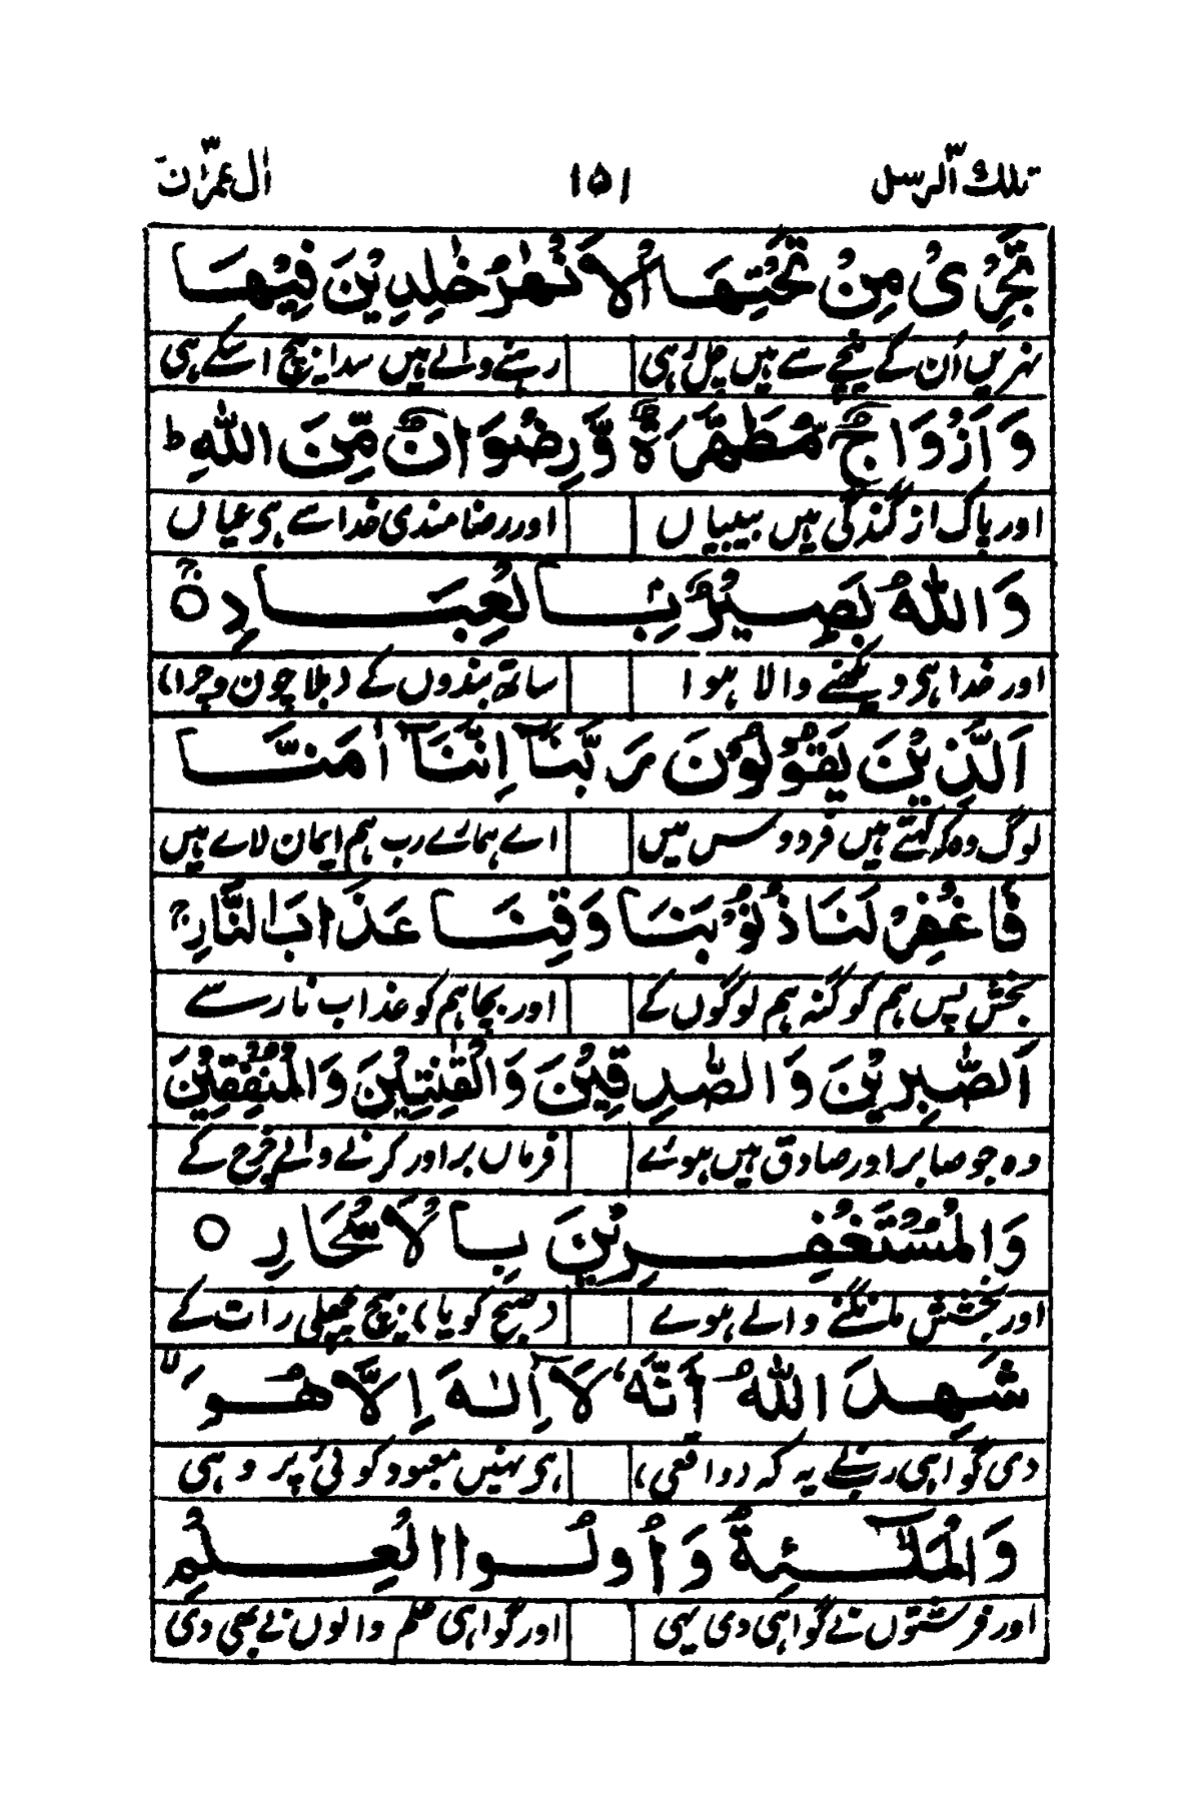 تلك الرسل ٣ ١٥١ اٰل عمرٰن ٣
تَجْرِىْ مِنْ تَحْتِهَا الْاَنْهٰرُ خٰلِدِيْنَ فِيْهَا
نہریں اُن کے نیچے سے ہیں چل رہی رہنے والے ہیں سدا بیچ اسکے ہی
وَاَزْوَاجٌ مُّطَهَّرَةٌ وَّرِضْوَانٌ مِّنَ اللّٰهِ ؕ
اور پاک از گندگی ہیں بیبیاں اور رضامندی خدا سے ہی عیاں
وَاللّٰهُ بَصِيْرٌۢ بِالْعِبَادِ ۚ
اور خدا ہی دیکھنے والا ہوا ساتھ بندوں کے (بلا چون وچرا)
اَلَّذِيْنَ يَقُوْلُوْنَ رَبَّنَآ اِنَّنَآ اٰمَنَّا
لوگ وہ کہ کہتے ہیں فردوس میں اے ہمارے رب ہم ایمان لاے ہیں
فَاغْفِرْ لَنَا ذُنُوْبَنَا وَقِنَا عَذَابَ النَّارِ ۚ
بخش پس ہم کو گنہ ہم لوگوں کے اور بچا ہم کو عذاب نار سے
اَلصّٰبِرِيْنَ وَالصّٰدِقِيْنَ وَالْقٰنِتِيْنَ وَالْمُنْفِقِيْنَ
وہ جو صابر اور صادق ہیں ہوئے فرماں بر اور کرنے والے خرچ کے
وَالْمُسْتَغْفِرِيْنَ بِالْاَسْحَارِ ○
اور بخشش مانگنے والے ہوے (صبح گویا) بیچ پچھلی رات کے
شَهِدَ اللّٰهُ اَنَّهٗ لَآ اِلٰهَ اِلَّا هُوَ ۙ
دی گواہی رب نے یہ کہ (واقعی) ہی نہیں معبود کوئی پر وہی
وَالْمَلٰٓئِكَةُ وَاُولُوا الْعِلْمِ
اور فرشتوں نے گواہی دی یہی اور گواہی علم والوں نے بھی دی